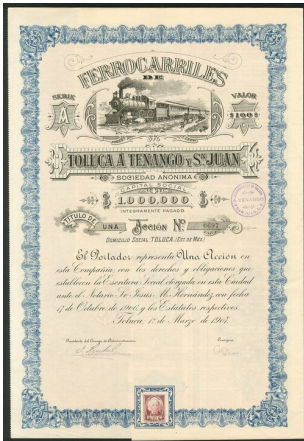 FERROCARRILES
DE
SERIE
VALOR
A
$100$
TOLUCA Á TENANGO Y Sn. JUAN
SOCIEDAD ANONIMA
CAPITAL SOCIAL
$ 1.000,000 $
INTEGRAMENTE PAGADO.
TÍTULO DE UNA ACCION No.
DOMICILIO SOCIAL TOLUCA (EST. DE MEX.)
El Portador representa Una Acción en
esta Compañía, con los derechos y obligaciones que
establecen la Escritura Social otorgada en esta Ciudad
ante el Notario Sr. Jesús M. Hernández, con fecha
17 de Octubre de 1906, y los Estatutos respectivos.
Toluca, 1º de Marzo de 1907.
Presidente del Consejo de Administración